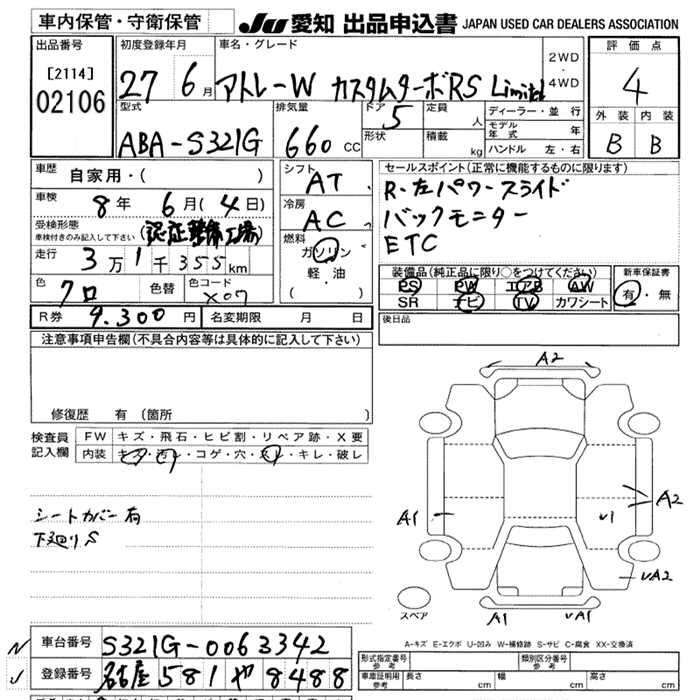 車内保管・守衛保管 JU 愛知 出品申込書 JAPAN USED CAR DEALERS ASSOCIATION
出品番号 初度登録年月 車名・グレード 評価点
[2114] 27 6月 アトレーW カスタムターボRS Limited 2WD・4WD 4
02106
型式 排気量 ドア 定員 ディーラー・並行 外装 内装
ABA-S321G 660 CC 5 人 モデル年式 年 B B
形状 積載 kg ハンドル 左・右
車歴 自家用・( ) シフト AT セールスポイント(正常に機能するものに限ります)
車検 8年 6月(4日) 冷房 AC R・左パワースライド
受検形態 バックモニター
車検付きのみ記入して下さい (認証整備工場) 燃料 ETC
走行 3万1千355km ガソリン
軽・油
( )
装備品(純正品に限り○をつけてください) 新車保証書
色 クロ 色替 色コード X07 PS PW エアB AW 有・無
SR ナビ TV カワシート
R券 9.300円 名変期限 月 日 後日品
注意事項申告欄(不具合内容等は具体的に記入して下さい)
A2
修復歴 有 (箇所
検査員記入欄 FW キズ・飛石・ヒビ割・リペア跡・X要
内装 キズ・汚レ・コゲ・穴・スレ・キレ・破レ
A2
シートカバー有 A1 U1
下廻りS
UA2
スペア A1 UA1
A-キズ E-エクボ U-凹み W-補修跡 S-サビ C-腐食 XX-交換済
N 車台番号 S321G-0063342
J 登録番号 名古屋 581 や 8488
形式指定番号 参考 類別区分番号 参考
車庫証明用 参考 長さ cm 幅 cm 高さ cm